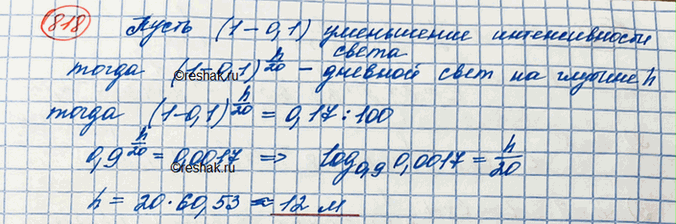 818 Пусть (1-0,1) уменьшение интенсивности
света
тогда (1-0,1)^(h/20) - дневной свет на глубине h
©reshak.ru
тогда (1-0,1)^(h/20) = 0,17 : 100
0,9^(h/20) = 0,0017 => log_0,9 0,0017 = h/20
©reshak.ru
h = 20·60,53 ≈ 12 м